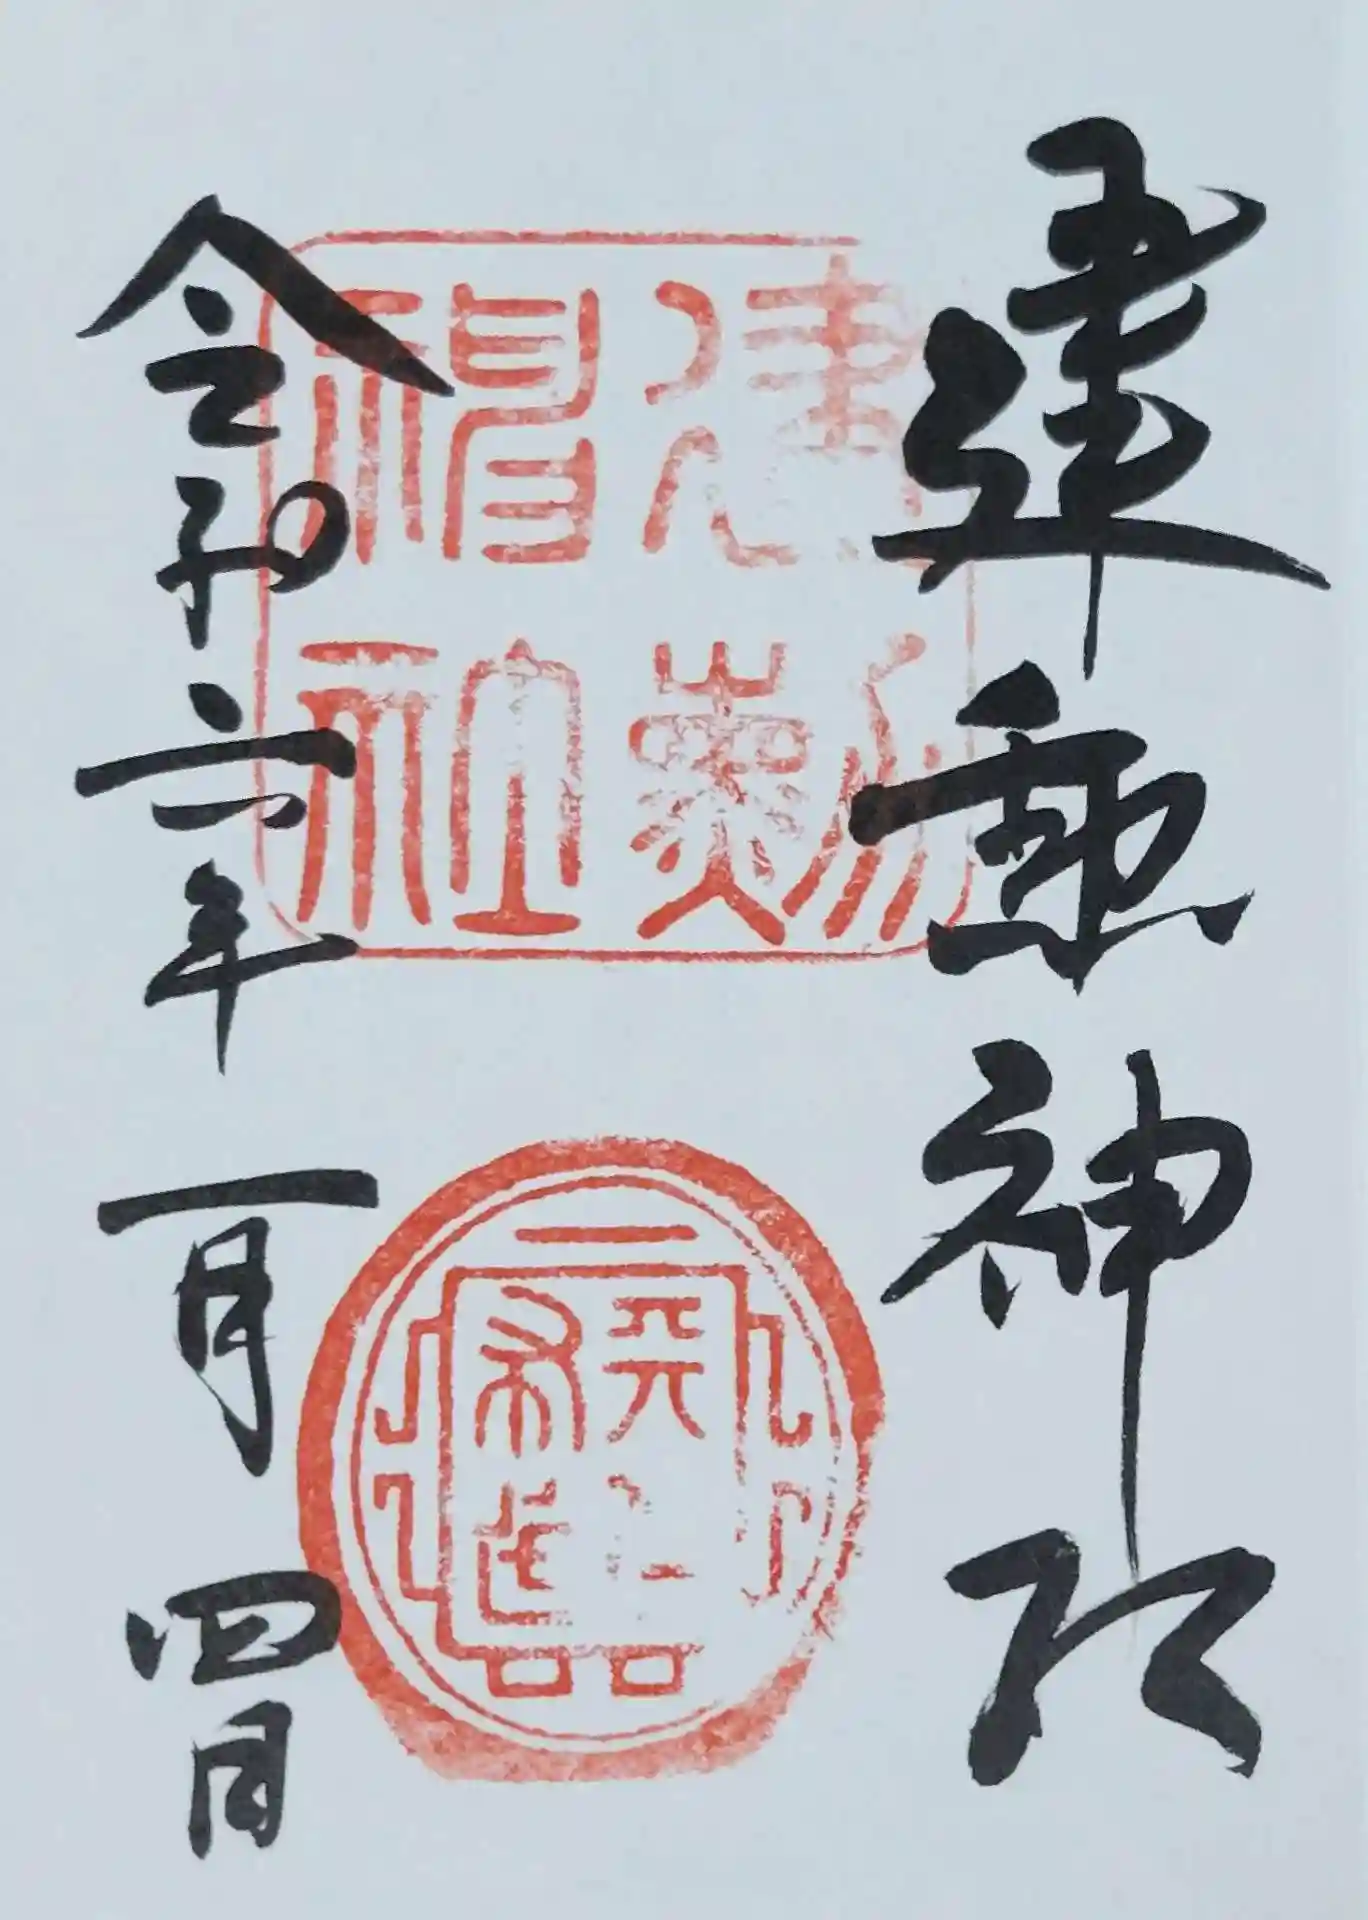 建勲神社
令和六年一月四日
建勲
神社
天下
布武